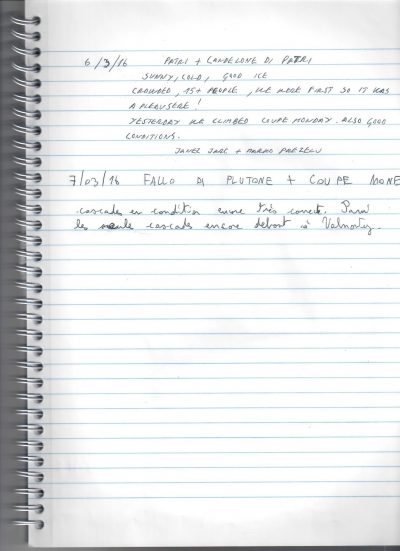 6/3/16 PATRI + CANDELONE DI PATRI
SUNNY, COLD, GOOD ICE
CROWDED, 15+ PEOPLE, WE WERE FIRST SO IT WAS
A PLEUSERE!
YESTERDAY WE CLIMBED COUPE MONDAY. ALSO GOOD
CONDITIONS.
JANEZ + MARKO
7/03/16 FALLO DI PLUTONE + COUPE MONE
cascades en condition encore très correcte. Parmi
les seules cascades encore debout à Valnontey.